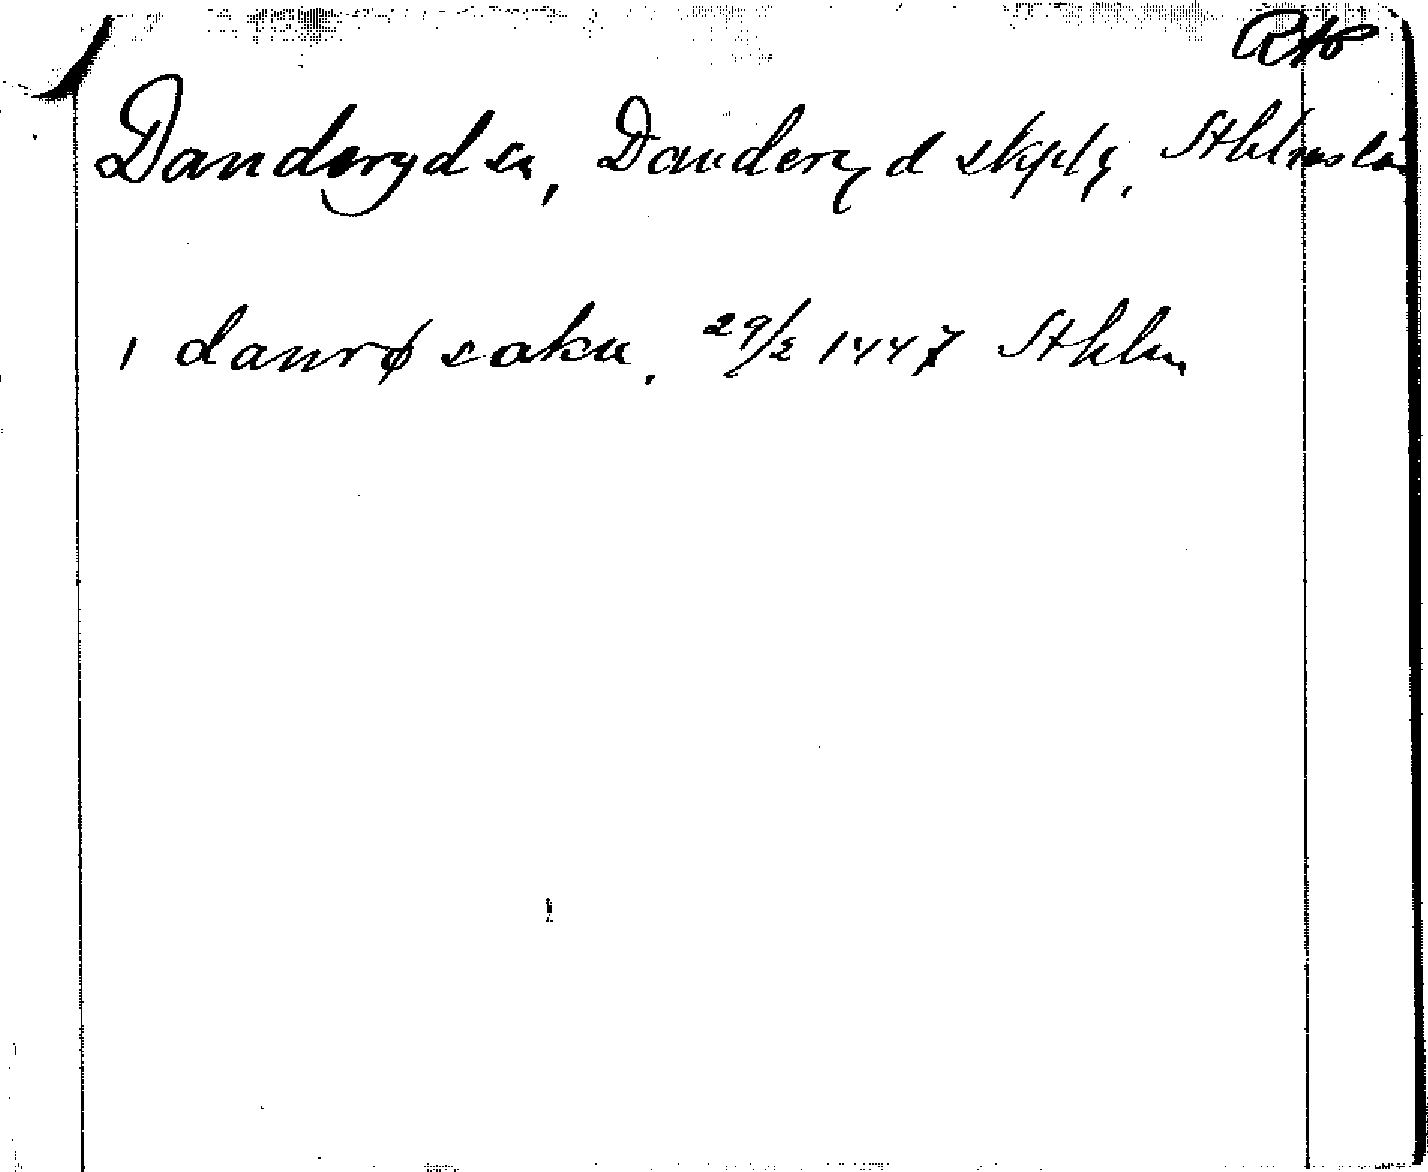 RAp
Danderyd sn, Danderyd skplg, Sthlms län
i danrø sokn. 29/2 1447 Sthlm